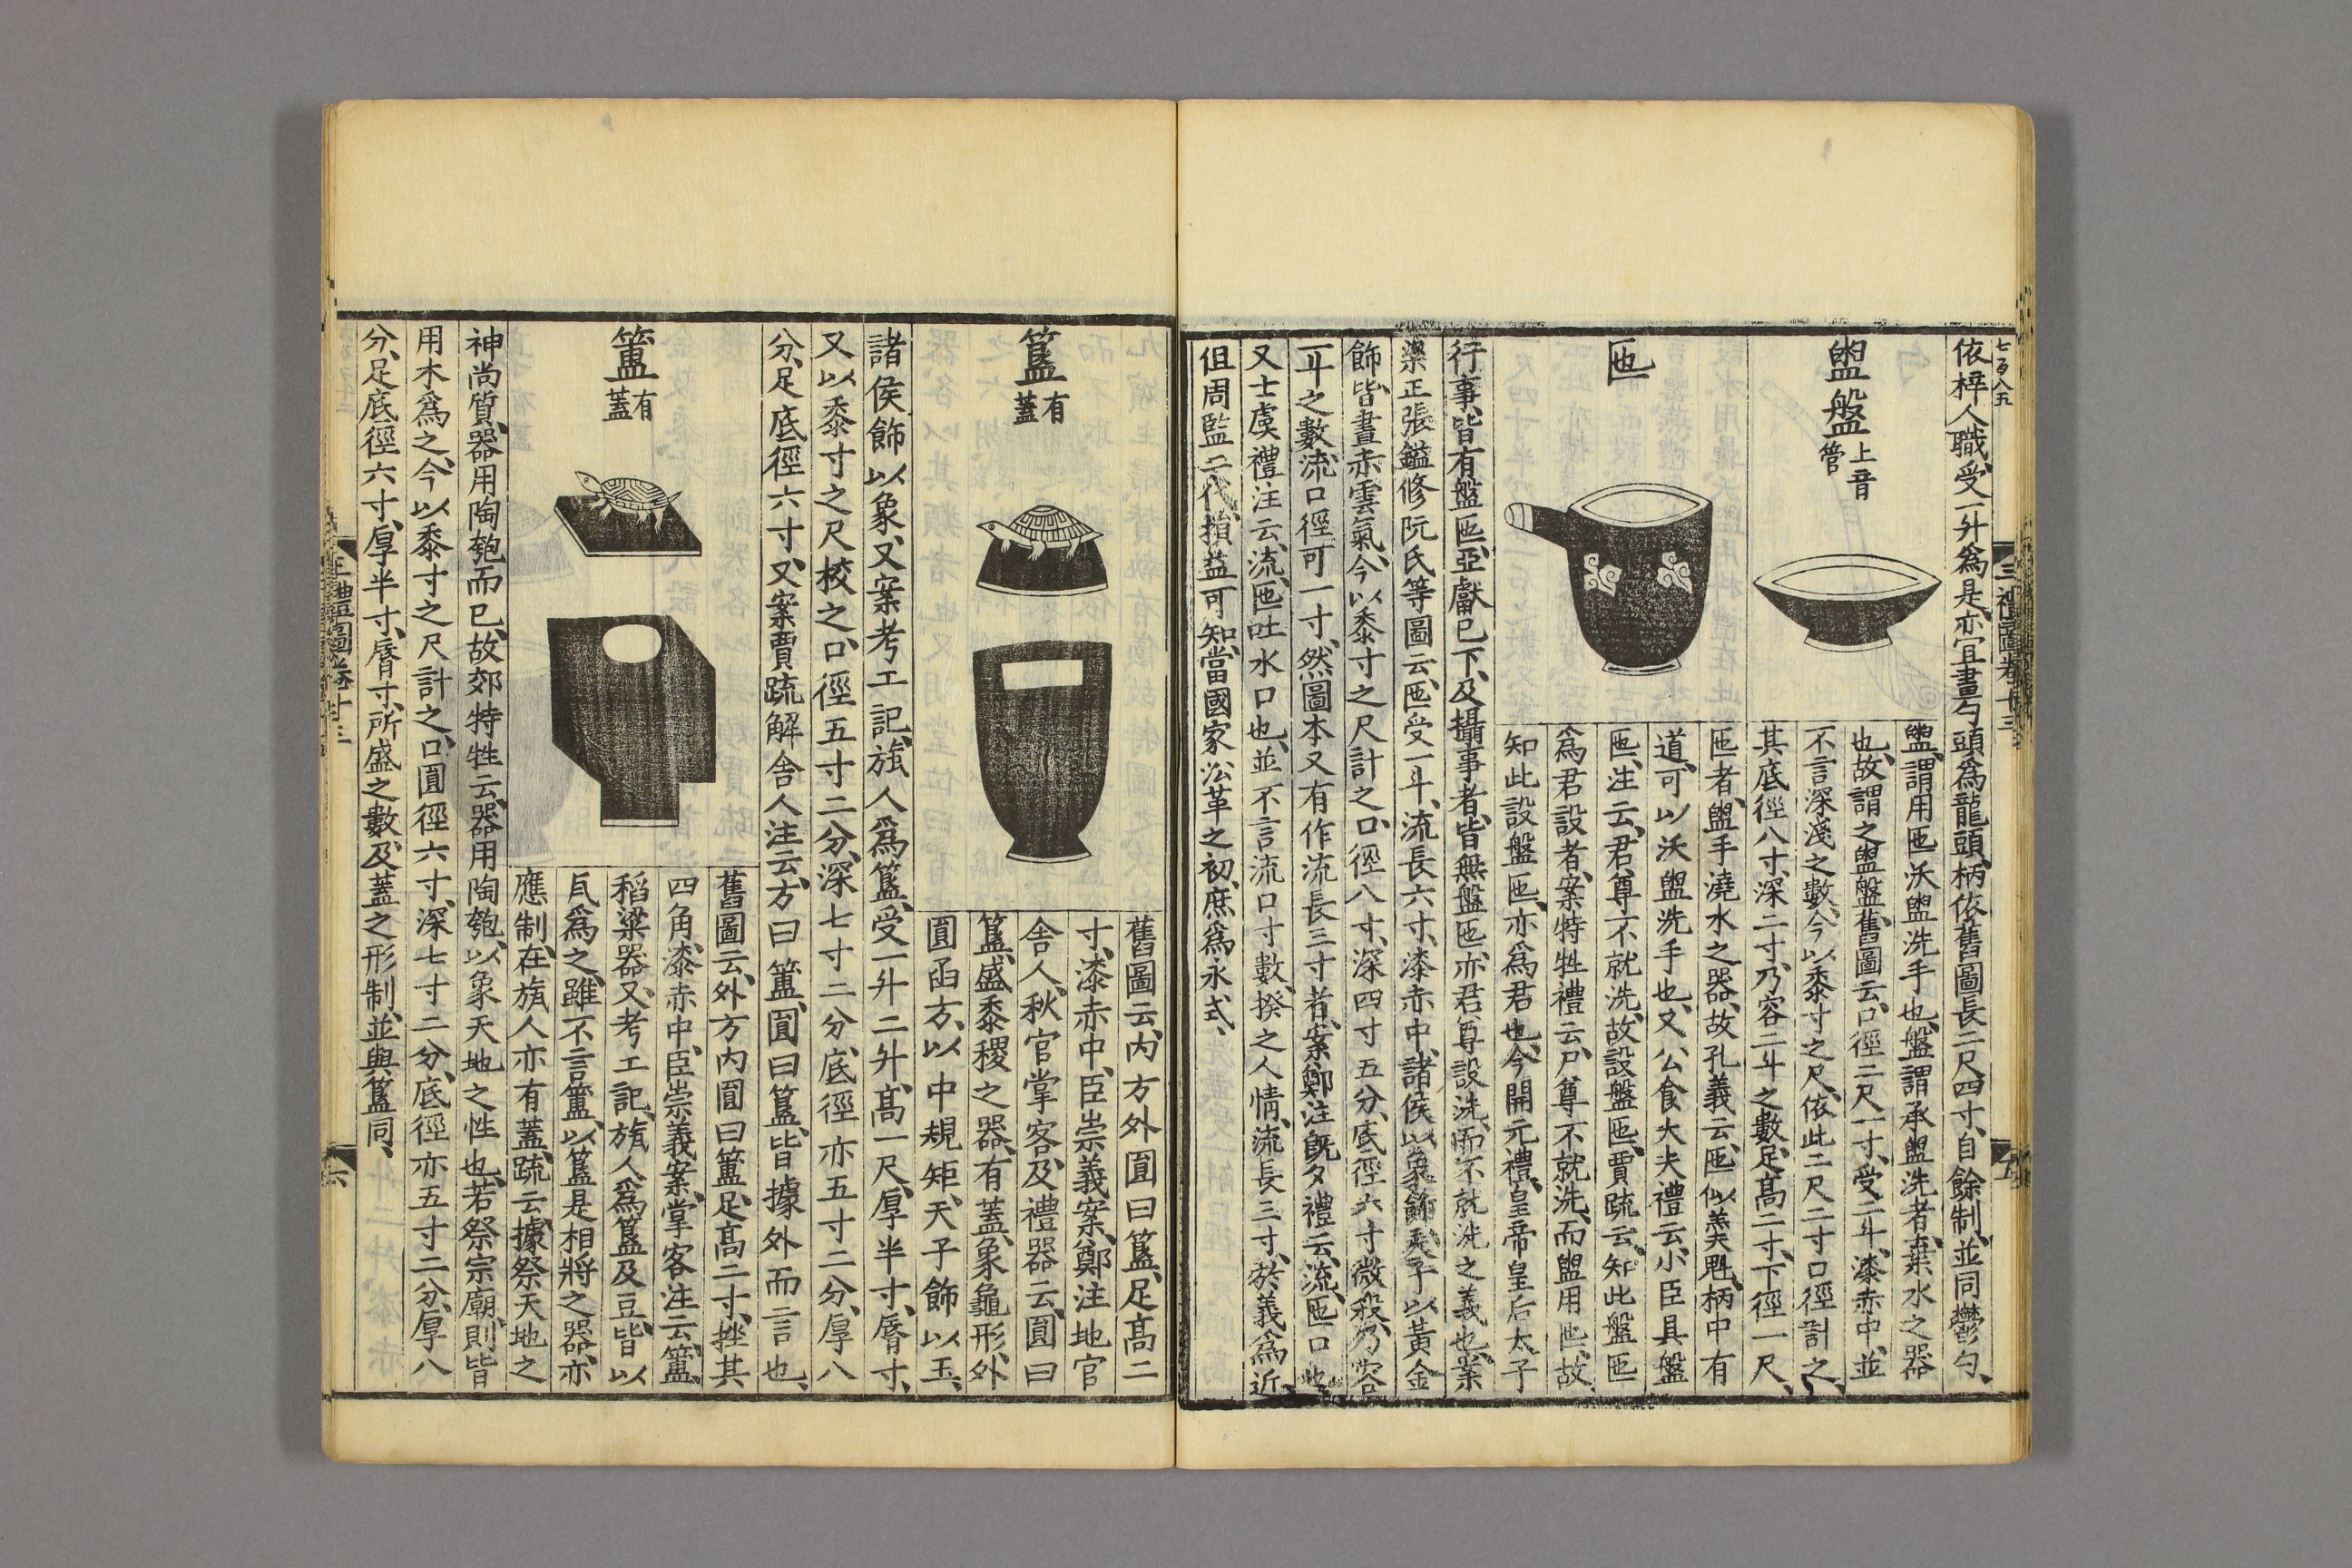 依梓人職、受一升爲是、亦宜畫勺頭爲龍頭、柄依舊圖長二尺四寸、自餘制、並同鬱勺、
盥盤
上音
管
盥、謂用匜沃盥洗手也、盤、謂承盥洗者、棄水之器
也、故謂之盥盤、舊圖云、口徑二尺一寸、受二斗、漆赤中、並
不言深淺之數、今以黍寸之尺、依此二尺二寸口徑計之、
其底徑八寸、深二寸、乃容二斗之數、足高二寸、下徑一尺、
匜
匜者、盥手澆水之器、故孔義云、匜似羹魁、柄中有
道、可以沃盥洗手也、又公食大夫禮云、小臣具盤
匜、注云、君尊不就洗、故設盤匜、賈疏云、知此盤匜
爲君設者、案特牲禮云、尸尊不就洗、而盥用匜、故
知此設盤匜、亦爲君也、今開元禮、皇帝皇后太子
行事、皆有盤匜、亞獻已下、及攝事者、皆無盤匜、亦君尊設洗、而不就洗之義也、案
梁正張鎰修阮氏等圖云、匜受一斗、流長六寸、漆赤中、諸侯以象飾、天子以黃金
飾、皆畫赤雲氣、今以黍寸之尺計之、口徑八寸、深四寸五分、底徑六寸微殺、乃容
一斗之數、流口徑可一寸、然圖本又有作流長三寸者、案鄭注旣夕禮云、流、匜口也
又士虞禮注云、流、匜吐水口也、並不言流口寸數、揆之人情、流長三寸、於義爲近、
但周監二代、損益可知、當國家㳂革之初、庶爲永式、
三禮圖卷十三
五
簋
有
蓋
舊圖云、內方外圓曰簋、足高二
寸、漆赤中、臣崇義案、鄭注地官
舍人、秋官掌客、及禮器云、圓曰
簋、盛黍稷之器、有蓋、象龜形、外
圓函方、以中規矩、天子飾以玉、
諸侯飾以象、又案考工記、旊人爲簋、受一升二升、高一尺、厚半寸、脣寸、
又以黍寸之尺校之、口徑五寸二分、深七寸二分、底徑亦五寸二分、厚八
分、足底徑六寸、又案賈疏解舍人注云、方曰簠、圓曰簋、皆據外而言也、
簠
有
蓋
舊圖云、外方內圓曰簠、足高二寸、挫其
四角、漆赤中、臣崇義案、掌客注云、簠、
稻粱器、又考工記、旊人爲簋及豆、皆以
瓦爲之、雖不言簠、以簋是相將之器、亦
應制、在旊人亦有蓋、疏云、據祭天地之
神尚質、器用陶匏而已、故郊特牲云、器用陶匏、以象天地之性也、若祭宗廟、則皆
用木爲之、今以黍寸之尺計之、口圓徑六寸、深七寸二分、底徑亦五寸二分、厚八
分、足底徑六寸、厚半寸、脣寸、所盛之數及蓋之形制、並與簋同、
三禮圖卷十三
六